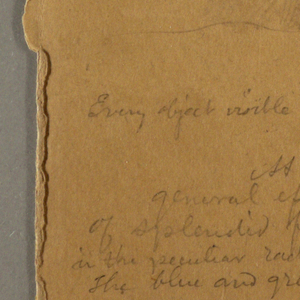 Every object visible
At
general ef
of splendid
in the peculiar rad
the blue and gre